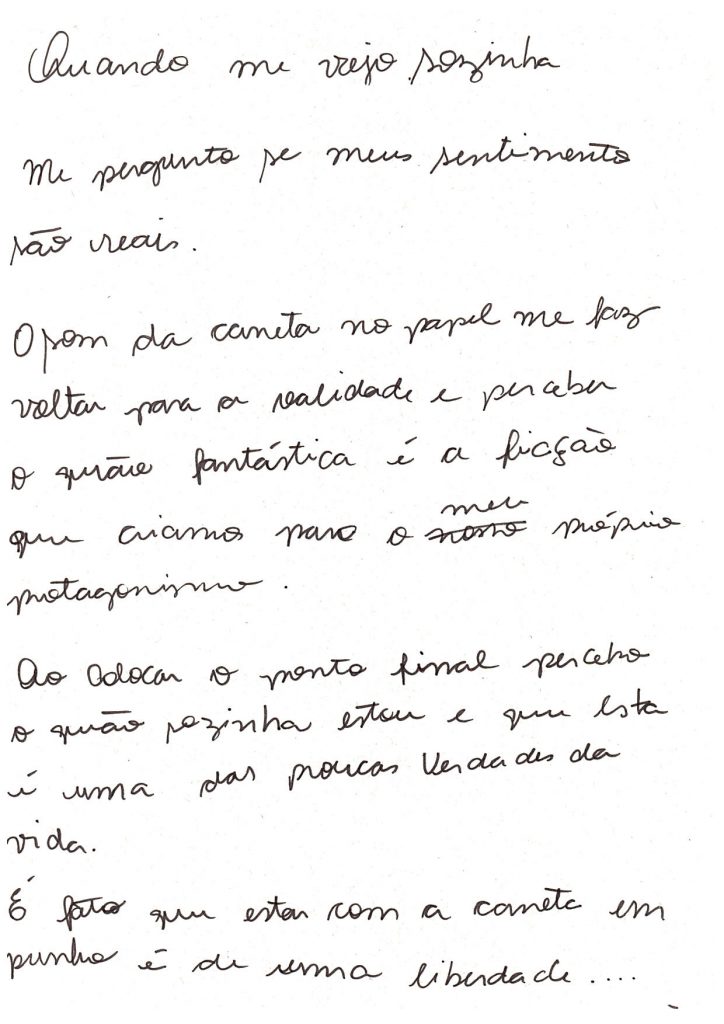 Quando me vejo sozinha
Me pergunto se meus sentimento
são reais.
O som da caneta no papel me faz
voltar para a realidade e perceber
o quão fantástica é a ficção
que criamos para o nosso meu próprio
protagonismo.
Ao colocar o ponto final percebo
o quão sozinha estou e que esta
é uma das poucas verdades da
vida.
É fato que estar com a caneta em
punho é de uma liberdade....